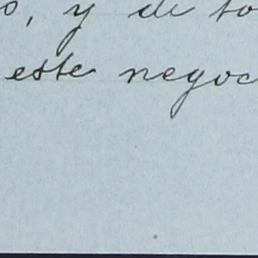 o, y de to
este negoc